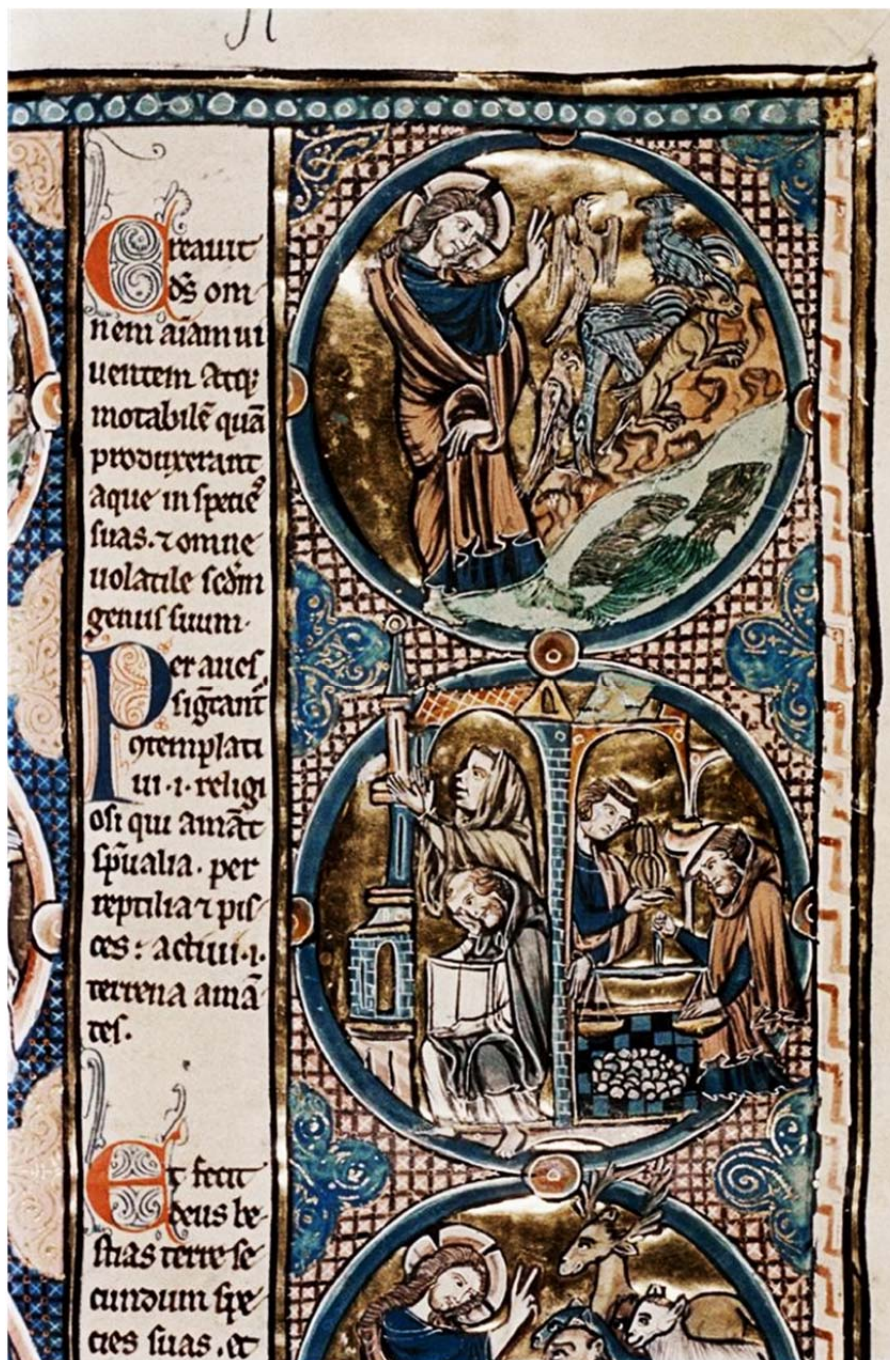 Creauit
ds̄ om
nem aīam ui
uentem atq;
motabilē quā
produxerant
aque in specieˀ
suas. ⁊ omne
uolatile scd̄m
genus suum.
Per aues
sīg̅cant᷑
ꝯtemplati
ui .i. religi
osi qui amāt
sp̄ualia. per
reptilia ⁊ pis
ces: actiui .i.
terrena amā
tes.
Et fecit
deus be
stias terre se
cundum spe
cies suas. et